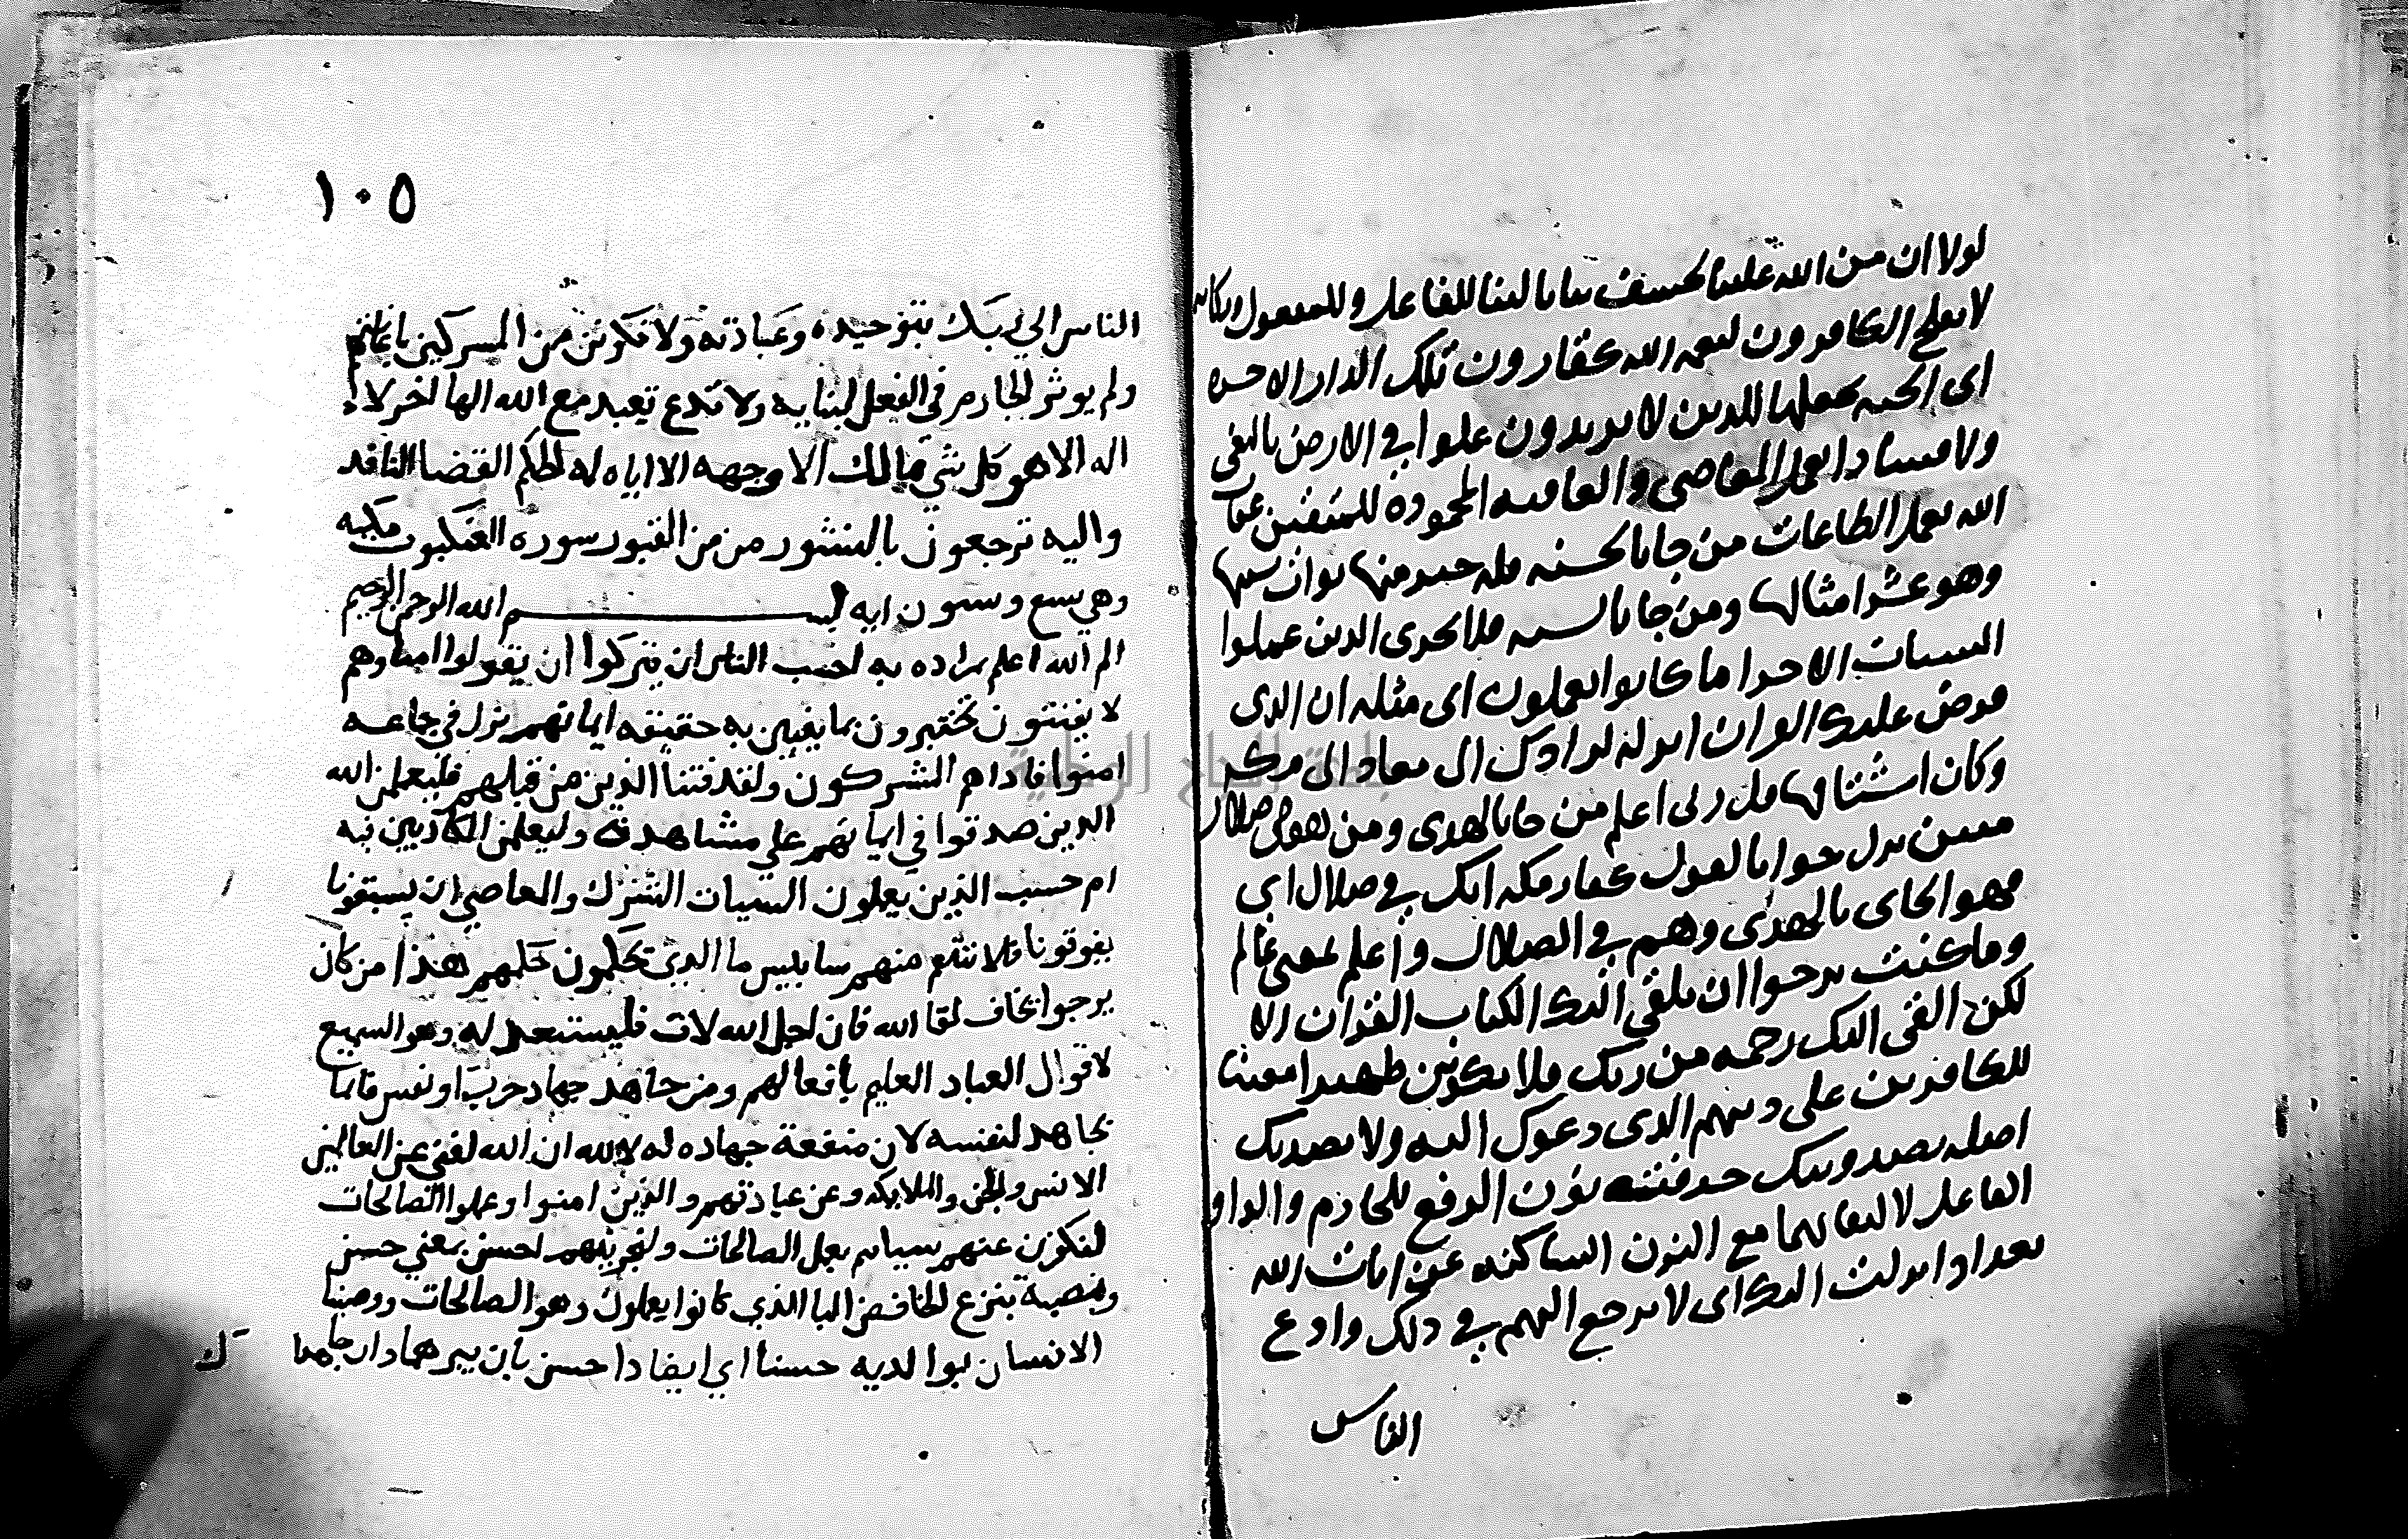 لولا ان من الله علينا لخسف بنا بالبنا للفاعل وللمفعول ويكانه
لا يفلح الكافرون لنعم الله كقارون تلك الدار الاخره
اى الجنه نجعلها للدين لا يريدون علوا في الارض بالبغى
ولا فسادا بعمل المعاصى والعاقبه المحموده للمتقين عقاب
الله بعمل الطاعات من جا بالحسنه فله خير منها ثواب بسببها
وهو عشر امثالها ومن جا بالسيه فلا يجزى الدين عملوا
السيات الا جزا ما كانوا يعملون اى مثله ان الدى
فرض عليك القران انزله لرادك الى معاد الى مكه
وكان اشتاقها قل ربى اعلم من جا بالهدى ومن هو في ضلال
مبين نزل جوابا لقول كفار مكه انك في ضلال اي
فهو الجاى بالهدى وهم في الضلال واعلم بمعنى عالم
وما كنت ترجوا ان يلقى اليك الكتاب القران الا
لكن القى اليك رحمه من ربك فلا تكونن ظهيرا معينا
للكافرين على دينهم الدى دعوك اليه ولا يصدنك
اصله يصدونك حدفت نون الرفع للجازم والواو
الفاعل لالتقائها مع النون الساكنه عن ايات الله
بعد اد انزلت اليك اى لا ترجع اليهم في دلك وادع
الناس
١٠٥
الناس الي ربك بتوحيده وعبادته ولا تكونن من المسركين باعانتهم
ولم يوثر الجازم في الفعل لبنايه ولا تدع تعبد مع الله الها اخر لا
اله الا هو كل شي هالك الا وجهه الا اياه له الحكم القضا النافد
واليه ترجعون بالنشور من من القبور سوره العنكبوت مكيه
وهي تسع وستون ايه بسم الله الرحمن الرحيم
الم الله اعلم بمراده به احسب الناس ان يتركوا ان يقولوا امنا وهم
لا يفتنون يختبرون بما يتبين به حقيقه ايمانهم نزل في جماعه
امنوا فاداهم المشركون ولقد فتنا الذين من قبلهم فليعلمن الله
الدين صدقوا في ايمانهم علي مشاهدة وليعلمن الكاذبين فيه
ام حسب الذين يعملون السيات الشرك والمعاصي ان يسبقونا
يفوتونا فلا ننتقم منهم سا بيس ما الذي يحكمون حكمهم هذا من كان
يرجوا يخاف لقا الله فان اجل الله لات فليستعد له وهو السميع
لاقوال العباد العليم بافعالهم ومن جاهد جهاد حرب او نفس فانما
يجاهد لنفسه لان منفعة جهاده له لا لله ان الله لغني عن العالمين
الانس والجن والملايكه وعن عبادتهم والذين امنوا وعملوا الصالحات
لنكفرن عنهم سياتهم بعمل الصالحات ولنجزينهم احسن بمعني حسن
ونصبه بنزع الخافض البا الذي كانوا يعملون وهو الصالحات ووصينا
الانسان بوالديه حسنا اي ايصادا حسن بان يبرهما وان جاهدا
ك